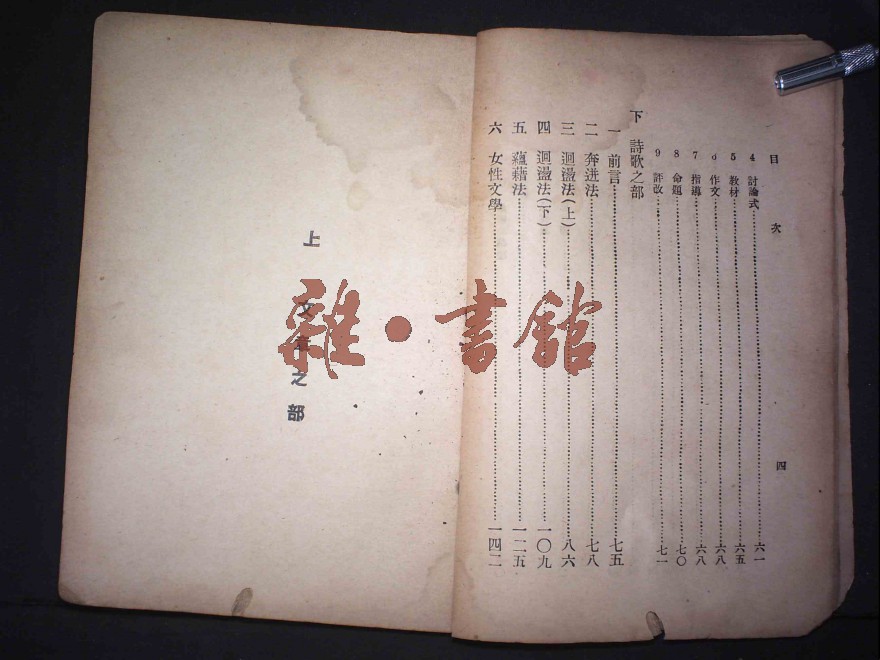 目次
四
4 討論式……六一
5 教材……六五
6 作文……六八
7 指導……六八
8 命題……七〇
9 評改……七一
下 詩歌之部
一 前言……七五
二 奔迸法……七八
三 迴盪法(上)……八六
四 迴盪法(下)……一〇九
五 蘊藉法……一二五
六 女性文學……一四二
上 文章之部
雜·書館